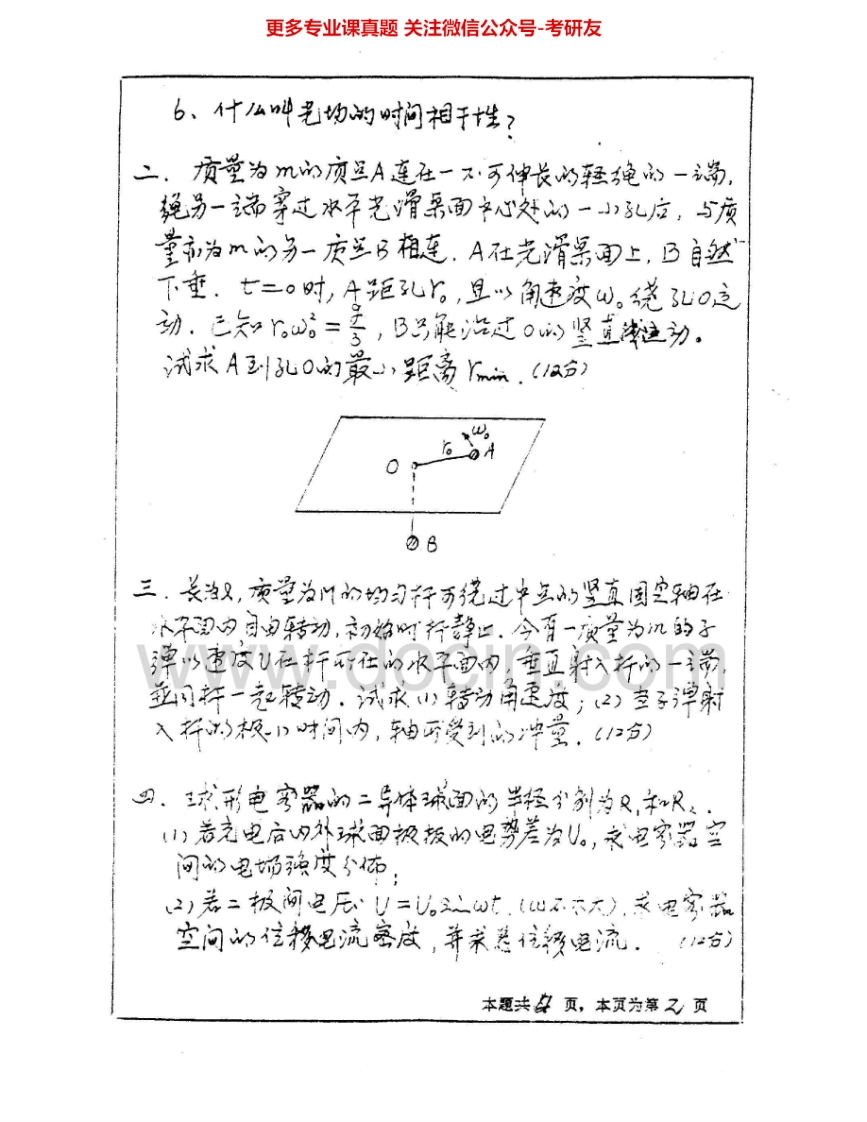 更多专业课真题 关注微信公众号-考研友
6、什么叫光场的时间相干性?
二. 质量为m的质点A连在一不可伸长的轻绳的一端,
绳另一端穿过水平光滑桌面中心处的一小孔后, 与质
量亦为m的另一质点B相连. A在光滑桌面上, B自然
下垂. t=0时, A距孔r₀, 且以角速度ω₀绕孔O运
动. 已知r₀ω₀²=g/3, B只能沿过O的竖直线运动.
试求A到孔O的最小距离r_min. (12分)
O r₀ ω₀ A
B
三. 长为l, 质量为M的均匀杆可绕过中点的竖直固定轴在
水平面内自由转动, 初始时杆静止. 今有一质量为m的子
弹以速度v在杆所在的水平面内垂直射入杆的一端,
并同杆一起转动. 试求(1)转动角速度; (2)当子弹射
入杆的极小时间内, 轴所受到的冲量. (12分)
www.docin.com
四. 球形电容器的二导体球面的半径分别为R₁和R₂.
(1)若充电后内外球面极板的电势差为U₀, 求电容器空
间的电场强度分佈;
(2)若二极间电压U=U₀sinωt, (ω不太大), 求电容器
空间的位移电流密度, 并求总位移电流. (12分)
本题共4页, 本页为第2页